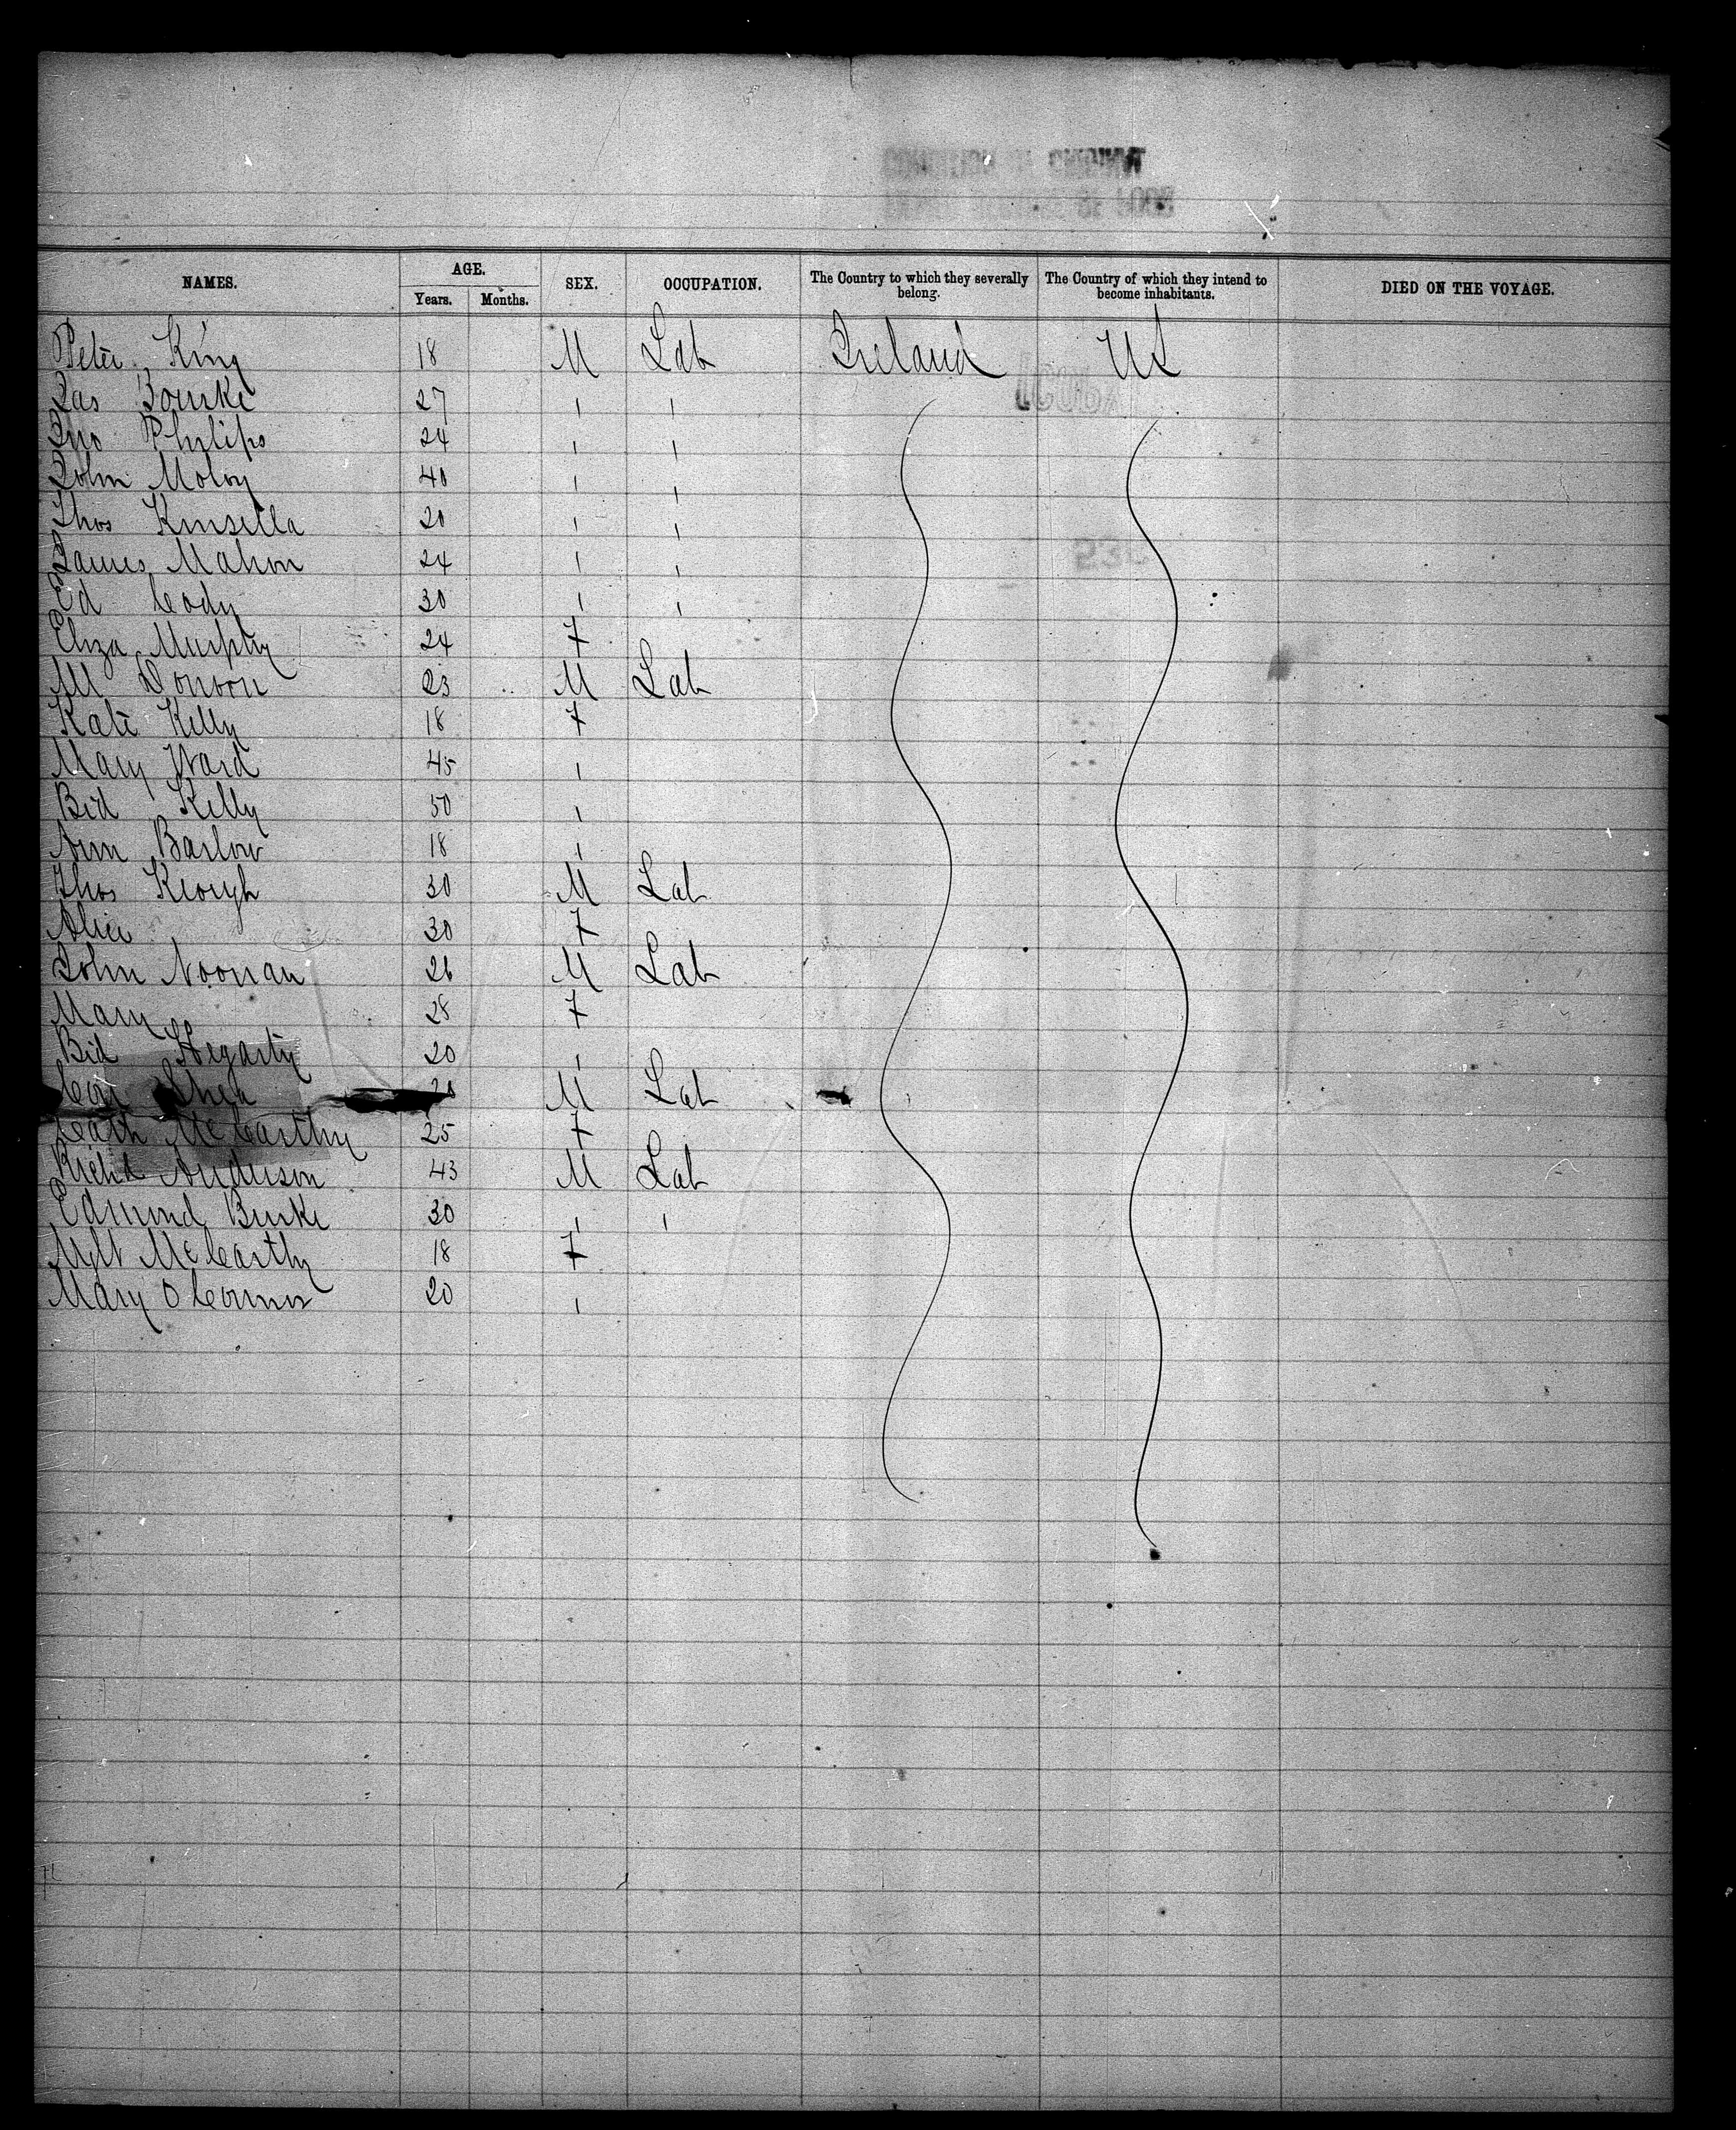 NAMES. AGE. SEX. OCCUPATION. The Country to which they severally belong. The Country of which they intend to become inhabitants. DIED ON THE VOYAGE.
Years. Months.
Peter King 18 M Lab Ireland US
Jas Bourke 27 " "
Jno Philips 24 " "
John Moloy 40 " "
Thos Kinsella 20 " "
James Mahon 24 " "
Ed Cody 30 " "
Eliza Murphy 24 F
M Donvon 23 M Lab
Kate Kelly 18 F
Mary Ward 45 "
Bid Kelly 50 "
Ann Barlow 18 "
Thos Keough 30 M Lab
Alice 30 F
John Noonan 26 M Lab
Mary 28 F
Bid Hegarty 20 "
Shea M Lab
Cath McCarthy 25 F
Richd Anderson 43 M Lab
Edmond Burke 30 " "
McCarthy 18 F
Mary O Connor 20 "